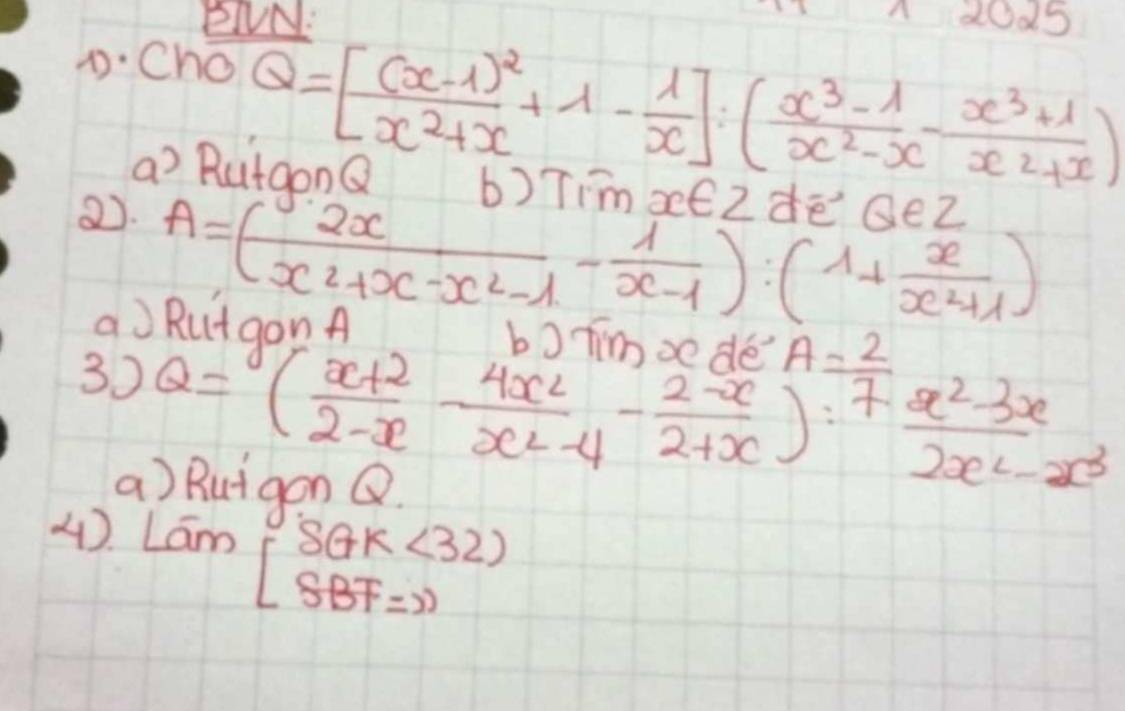 BTVN: 1 2025
1). Cho Q = [(x-1)²/(x²+x) + 1 - 1/x] : ((x³-1)/(x²-x) - (x³+1)/(x²+x))
a) Rút gọn Q b) Tìm x∈Z để Q∈Z
2). A = (2x/(x²+x-x²-1) - 1/(x-1)) : (1 + x/(x²+1))
a) Rút gọn A b) Tìm x để A = 2/7
3) Q = ((x+2)/(2-x) - 4x²/(x²-4) - (2-x)/(2+x)) : (x²-3x)/(2x²-x³)
a) Rút gọn Q.
4). Làm [ SGK <32)
SBT =))